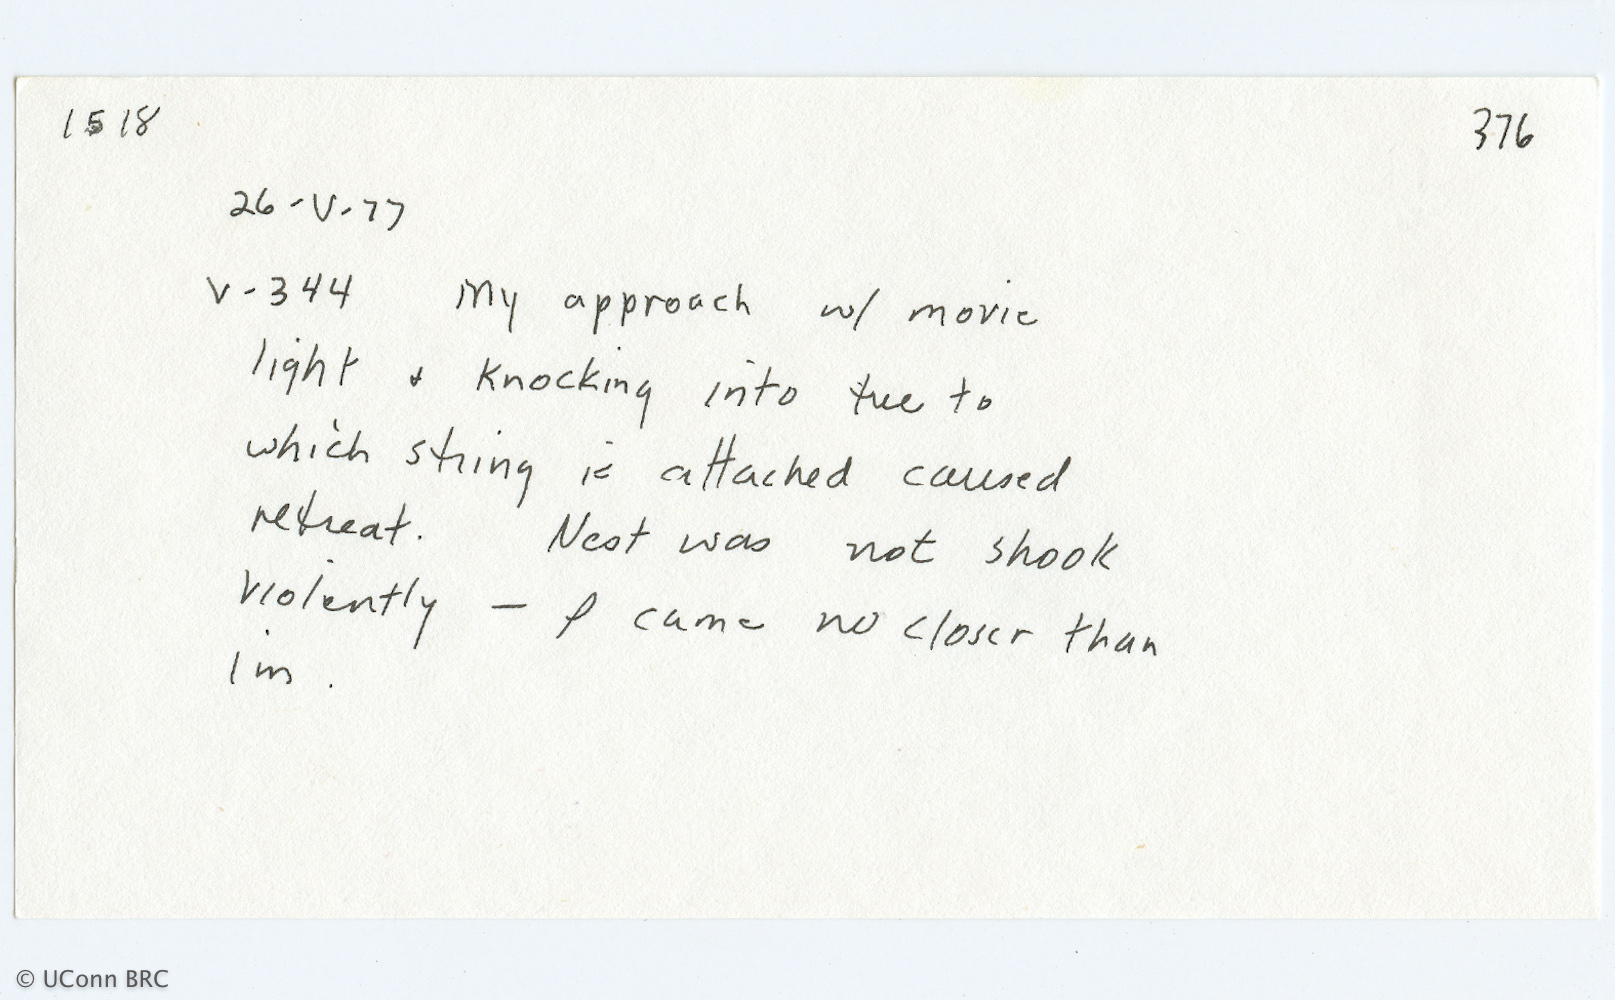 1518
376
26-V-77
V-344 My approach w/ movie
light & knocking into tree to
which string is attached caused
retreat. Nest was not shook
violently — I came no closer than
1m.
© UConn BRC